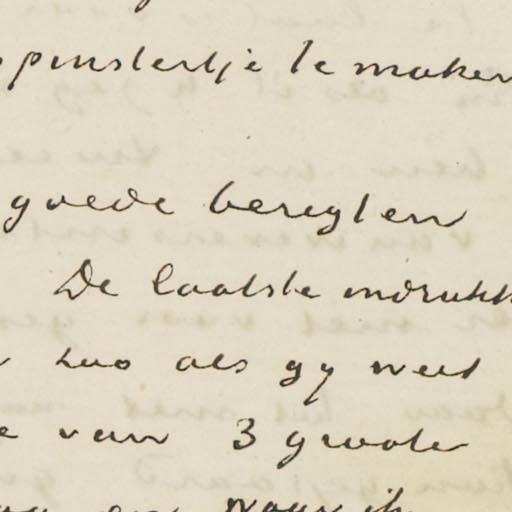 spinstertje te maken
goede beregten
De laatste indrukk
zuo als gy weet
e van 3 groote